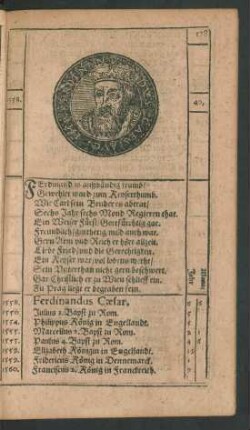 1558.
40.
Ferdinand, so
Erwehlet ward zum Keyserthumb.
Wie Carl sein Bruder es abtrat/
Sechs Jahr sechs Mond Regieren that.
Ein Weiser Fürst/ Gottsfürchtig gar.
Freundlich/ gutthetig/ mild auch war.
Gern Arm vnd Reich er hört allzeit.
Liebt Fried/ vnd die Gerechtigkeit.
Ein Keyser war/
Sein Vnterthan nicht gern beschwert.
Gar Christlich er zu Wien schlieff ein.
Zu Prag ligt er begraben sein.
Jahr
1558. Ferdinandus Cæsar,
1550. Julius 3. Bapst zu Rom.
Philippus König in Engellandt.
Marcellus 2. Bapst zu Rom.
Paulus 4. Bapst zu Rom.
Elizabeth Königin in Engellandt.
1559. Fridericus König in Dennemarck.
Franciscus 2. König in Franckreich.